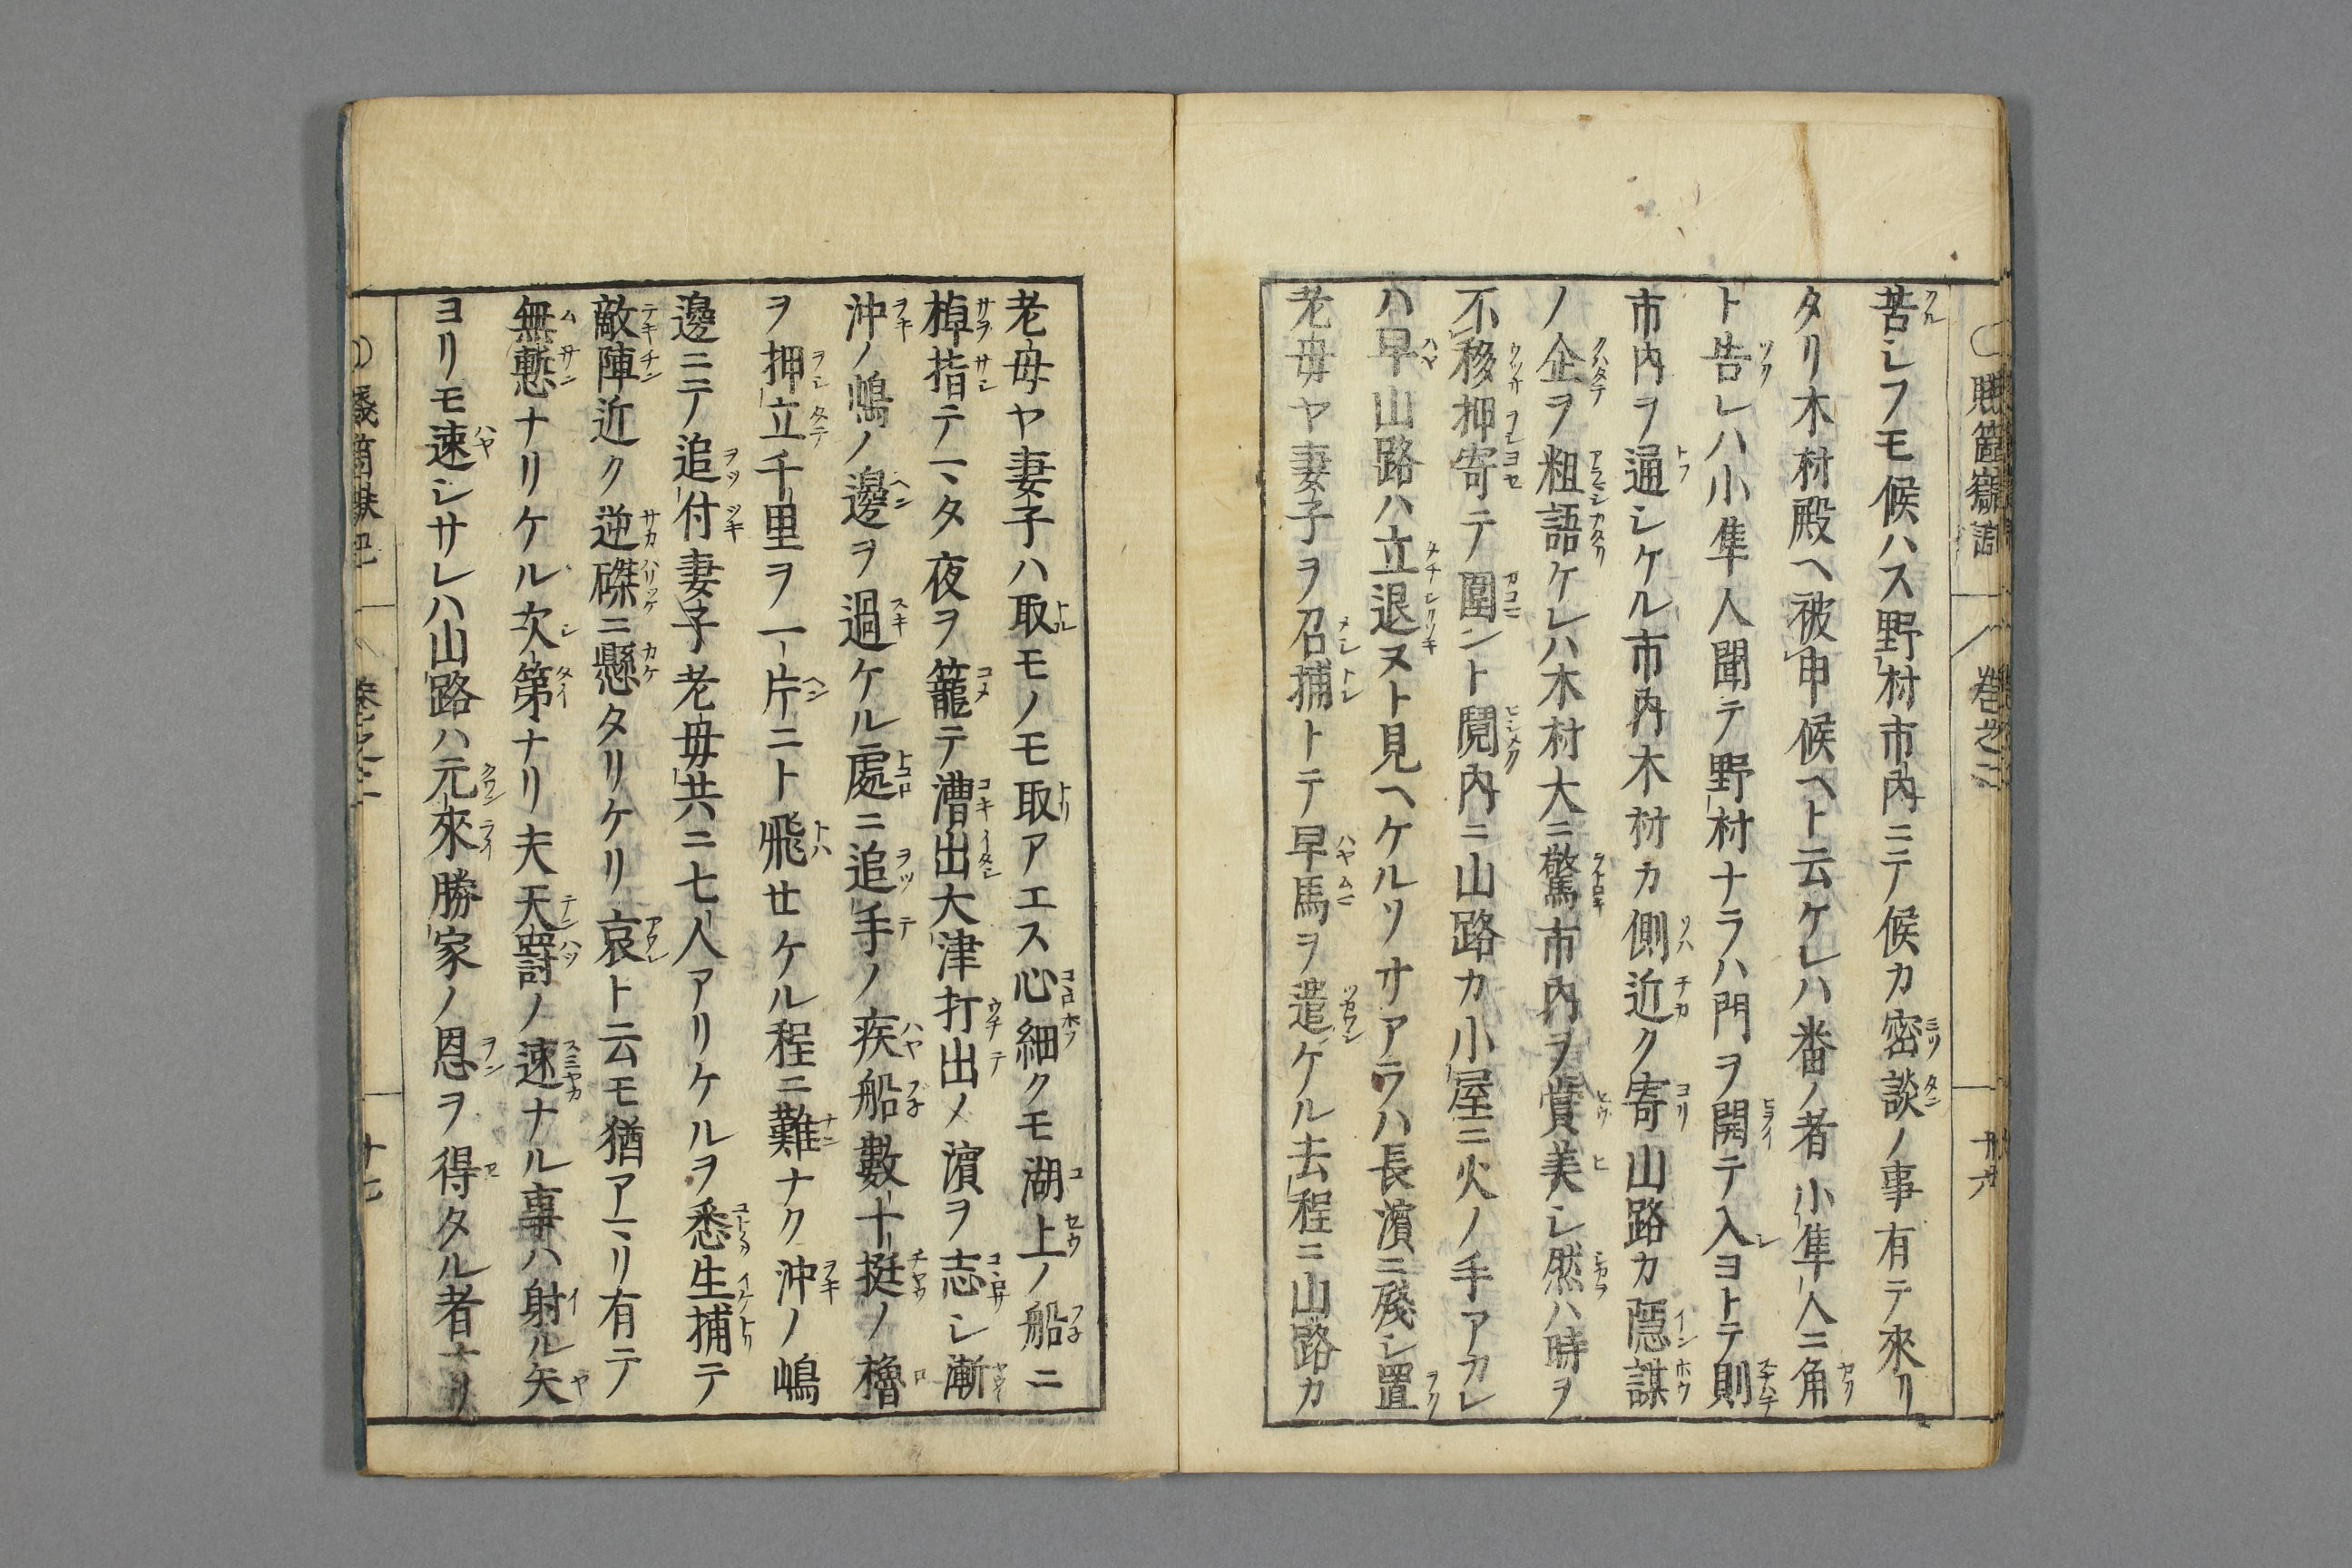 苦レフモ候ハス野村市内ニテ候カ密談ノ事有テ來リ
タリ木村殿ヘ被申候ヘト云ケレハ番ノ者小隼人ニ角
ト告レハ小隼人聞テ野村ナラハ門ヲ開テ入ヨトテ則
市内ヲ通シケル市内木村カ側近ク寄山路カ隱謀
ノ企ヲ粗語ケレハ木村大ニ驚市内ヲ賞美シ然ハ時ヲ
不移押寄テ圍ント鬩内ニ山路カ小屋ニ火ノ手アカレ
ハ早山路ハ立退ヌト見ヘケルソサアラハ長濵ニ殘シ置
老母ヤ妻子ヲ召捕トテ早馬ヲ遣ケル去程ニ山路カ
老母ヤ妻子ハ取モノモ取アエス心細クモ湖上ノ船ニ
棹指テマタ夜ヲ籠テ漕出大津打出ノ濵ヲ志シ漸
沖ノ嶋ノ邊ヲ過ケル處ニ追手ノ疾船數十挺ノ櫓
ヲ押立千里ヲ一片ニト飛セケル程ニ難ナク沖ノ嶋
邊ニテ追付妻子老母共ニ七人アリケルヲ悉生捕テ
敵陣近ク逆磔ニ懸タリケリ哀ト云モ猶アマリ有テ
無慙ナリケル次第ナリ夫天罸ノ速ナル事ハ射ル矢
ヨリモ速シサレハ山路ハ元來勝家ノ恩ヲ得タル者ナリ